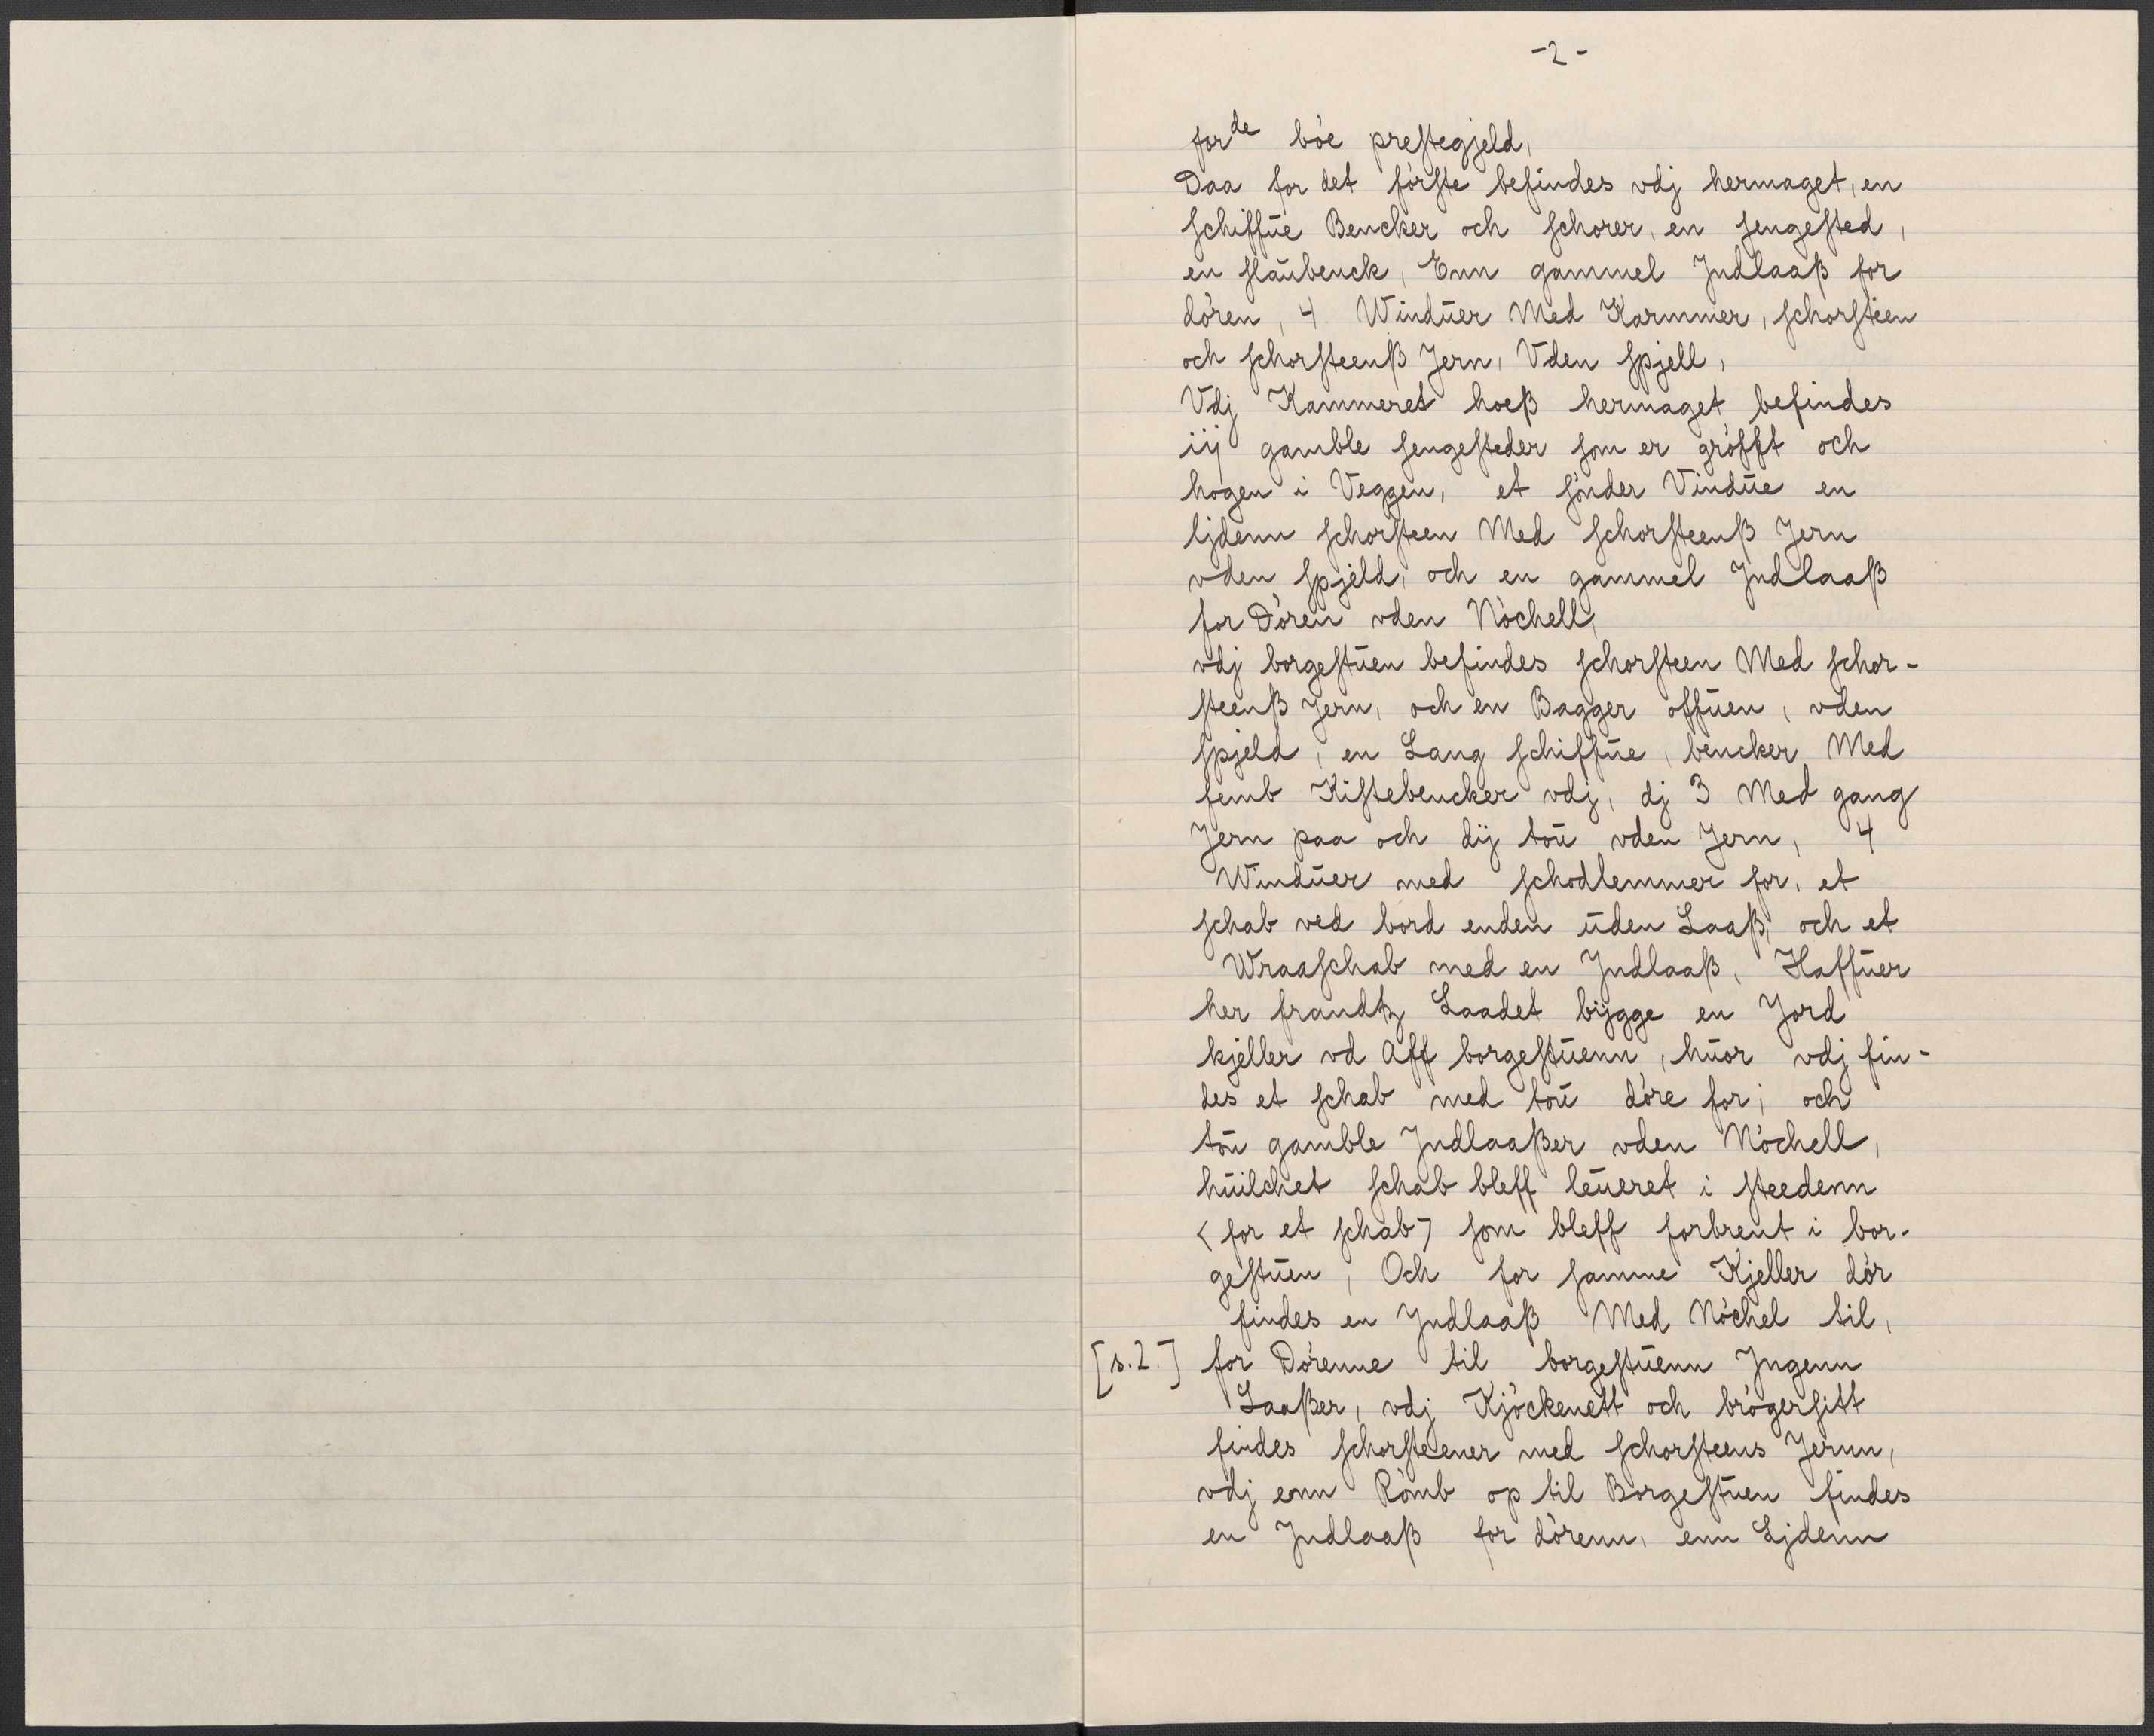 -2-
forde bòe prestegjeld,
Daa for det fòrste befindes vdj hermaget, en
schiffūe Bencker och schorer, en sengested,
en slaūbenck, Enn gammel Jndlaaß for
dòren, 4 Windūer Med Karmmer, schorsteen
och schorsteenß Jern, Vden spjell,
Vdj Kammeret hoeß hermaget befindes
iij gamble sengesteder som er gròfft och
hogen i Veggen, et sònder Vindūe en
ljdenn schorsteen Med schorsteenß Jern
vden spjeld, och en gammel Jndlaaß
for Dòren vden Nòchell,
vdj borgestūen befindes schorsteen Med schor-
steenß Jern, och en Bagger offūen, vden
spjeld, en Lang schiffūe, bencker Med
femb Kistebencker vdj, dj 3 Med gang
Jern paa och dij toū vden Jern, 4
Windūer med schodlemmer for, et
schab ved bord enden ūden Laaß, och et
Wraaschab med en Jndlaaß, Haffūer
her frandtz Laadet bijgge en Jord
kjeller vd Aff borgestūenn, hūor vdj fin-
des et schab med toū dòre for; och
toū gamble Jndlaaßer vden Nòchell,
hūilchet schab bleff leūeret i steedenn
<for et schab> som bleff forbrent i bor-
gestūen, Och for samme Kjeller dòr
findes en Jndlaaß Med Nòchel til,
[s.2.] for Dòrenne til borgestūenn Jngenn
Laaßer, vdj Kjòckenett och brògersitt
findes schorsteener med schorsteens Jernn,
vdj enn Ròmb op til Borgestūen findes
en Jndlaaß for dòrenn, enn Ljdenn